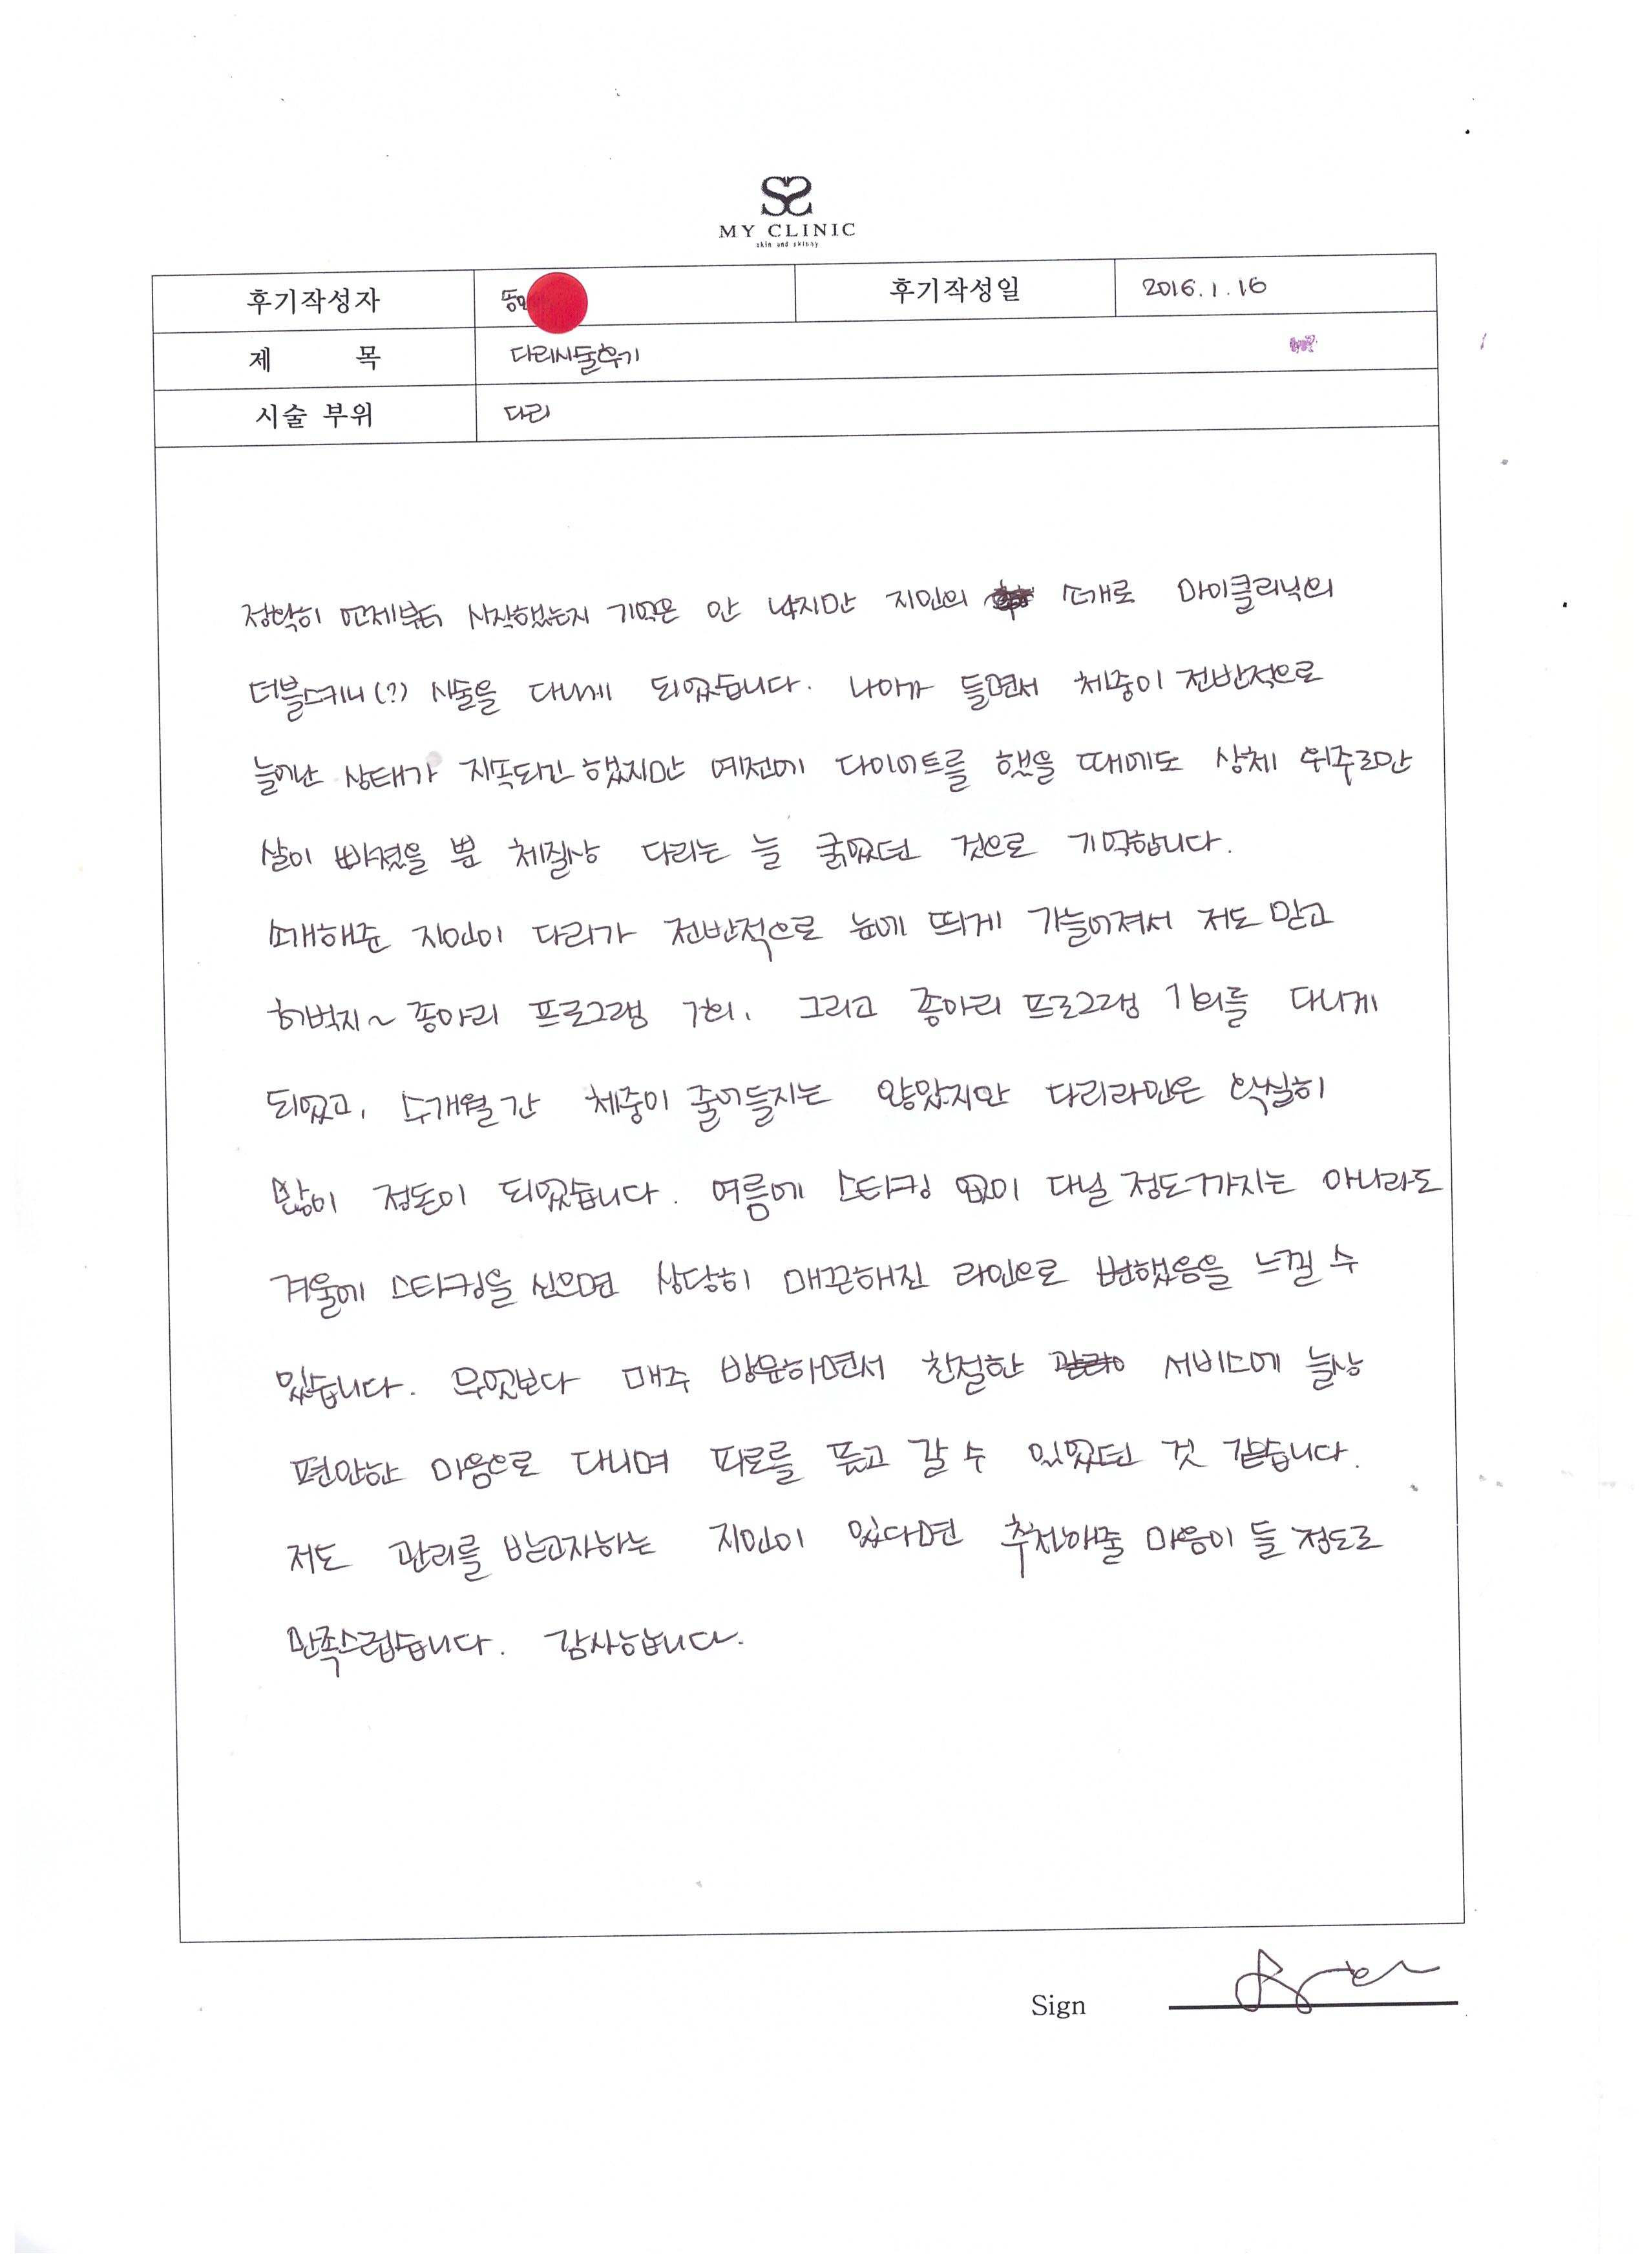 MY CLINIC
skin and skinny
후기작성자 후기작성일 2016. 1. 16
제 목 다리시술후기
시술 부위 다리
정확히 언제부터 시작했는지 기억은 안 나지만 지인의 소개로 마이클리닉의
더블스키니(?) 시술을 다니게 되었습니다. 나이가 들면서 체중이 전반적으로
늘어난 상태가 지속되긴 했지만 예전에 다이어트를 했을 때에도 상체 위주로만
살이 빠졌을 뿐 체질상 다리는 늘 굵었던 것으로 기억합니다.
소개해준 지인이 다리가 전반적으로 눈에 띄게 가늘어져서 저도 믿고
허벅지~종아리 프로그램 1회, 그리고 종아리 프로그램 1회를 다니게
되었고, 수개월간 체중이 줄어들지는 않았지만 다리라인은 확실히
많이 정돈이 되었습니다. 여름에 스타킹 없이 다닐 정도까지는 아니라도
겨울에 스타킹을 신으면 상당히 매끈해진 라인으로 변했음을 느낄 수
있습니다. 무엇보다 매주 방문하면서 친절한 서비스에 늘상
편안한 마음으로 다니며 피로를 풀고 갈 수 있었던 것 같습니다.
저도 관리를 받고자하는 지인이 있다면 추천해줄 마음이 들 정도로
만족스럽습니다. 감사합니다.
Sign